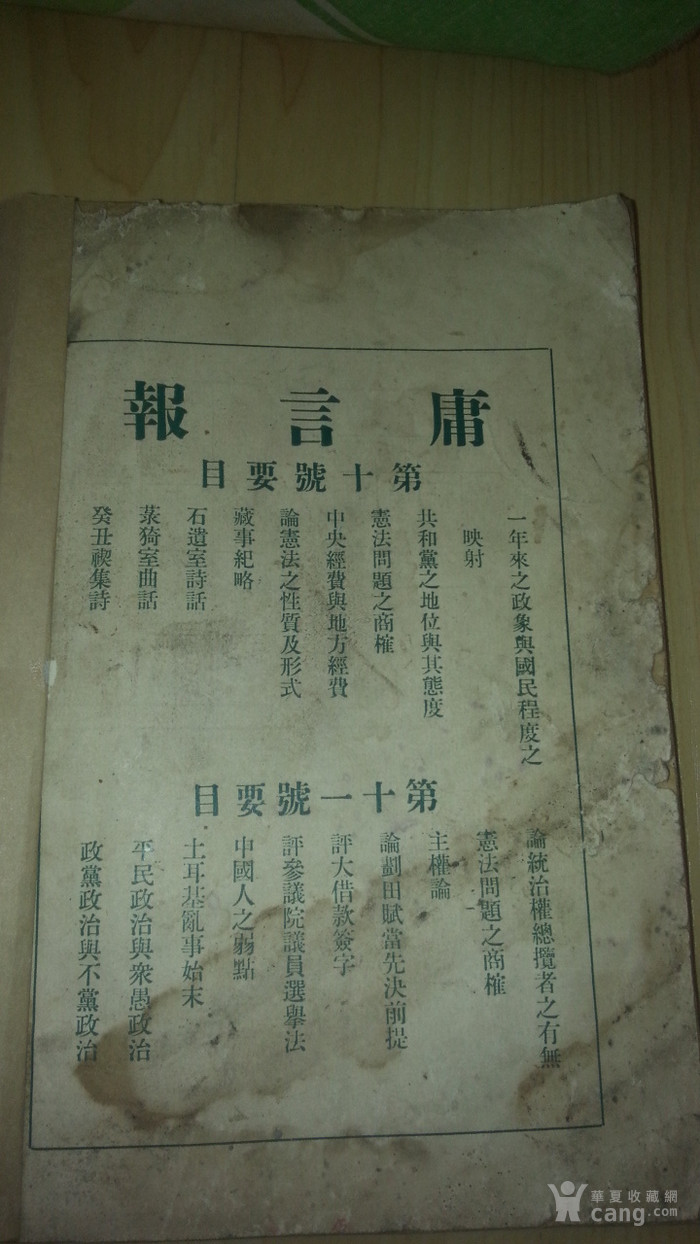 庸言報
第十號要目
一年來之政象與國民程度之
映射
共和黨之地位與其態度
憲法問題之商榷
中央經費與地方經費
論憲法之性質及形式
藏事紀略
石遺室詩話
菉猗室曲話
癸丑禊集詩
第十一號要目
論統治權總攬者之有無
憲法問題之商榷
主權論
論劃田賦當先決前提
評大借款簽字
評參議院議員選舉法
中國人之弱點
土耳基亂事始末
平民政治與衆愚政治
政黨政治與不黨政治
華夏收藏網
cang.com